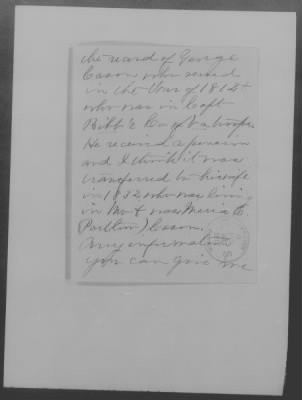 the record of George
Cason who served
in the War of 1812 &
who was in Capt
Bibb's Co of Va troops.
He received a pension
and I think it was
transferred to his wife
in 1832 who was living
in Mo & was Maria E.
Cason.
Any information
you can give me